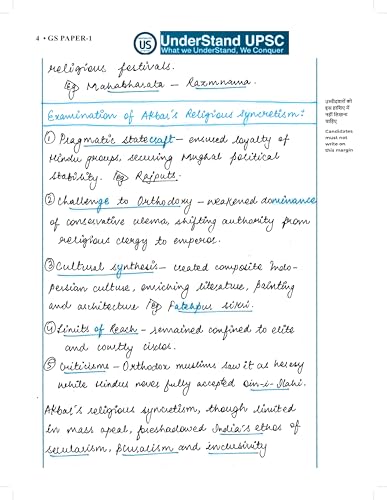 4 • GS PAPER-1
US
UnderStand UPSC
What we UnderStand, We Conquer
religious festivals.
Eg Mahabharata - Razmnama.
उम्मीदवारों को
इस हाशिए में
नहीं लिखना
चाहिए
Candidates
must not
write on
this margin
Examination of Akbar's Religious syncretism:
① Pragmatic statecraft - ensured loyalty of
Hindu groups, securing Mughal political
stability. Eg Rajputs.
② Challenge to Orthodoxy - weakened dominance
of conservative ulema, shifting authority from
religious clergy to emperor.
③ Cultural synthesis - created composite Indo-
Persian culture, enriching literature, painting
and architecture Eg Fatehpur sikri.
④ Limits of Reach - remained confined to elite
and courtly circles.
⑤ Criticisms - Orthodox muslims saw it as heresy
while Hindus never fully accepted Din-i-Ilahi.
Akbar's religious syncretism, though limited
in mass apeal, foreshadowed India's ethos of
secularism, pluralism and inclusivity